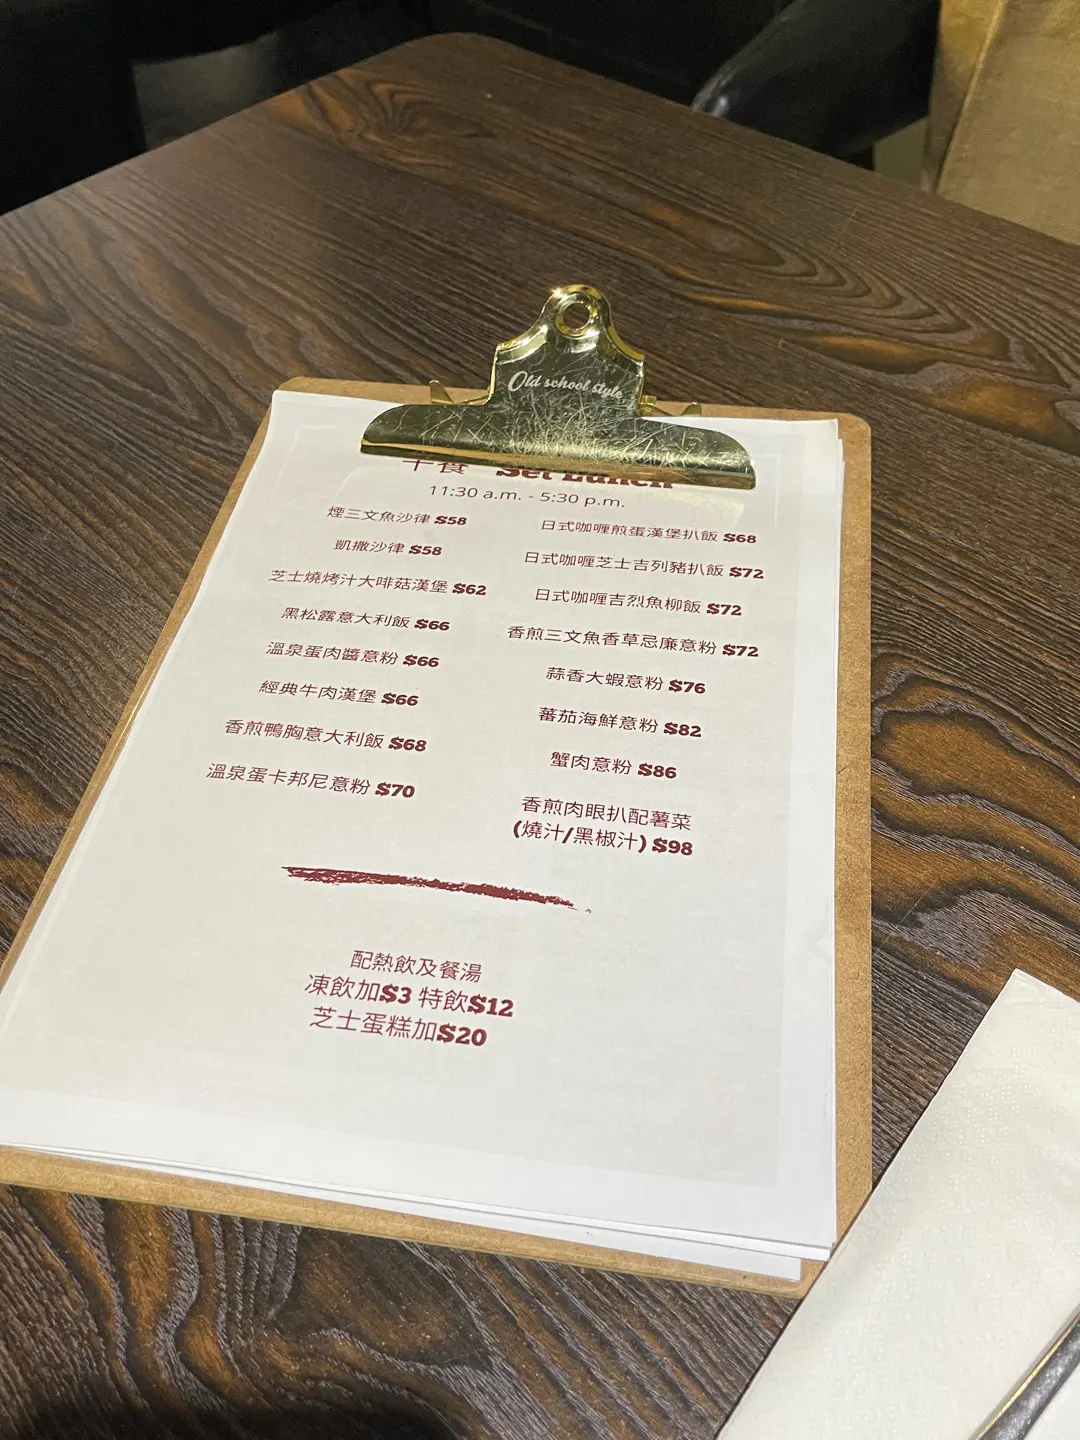 Old school style
午餐 Set Lunch
11:30 a.m. - 5:30 p.m.
煙三文魚沙律 $58
凱撒沙律 $58
芝士燒烤汁大啡菇漢堡 $62
黑松露意大利飯 $66
溫泉蛋肉醬意粉 $66
經典牛肉漢堡 $66
香煎鴨胸意大利飯 $68
溫泉蛋卡邦尼意粉 $70
日式咖喱煎蛋漢堡扒飯 $68
日式咖喱芝士吉列豬扒飯 $72
日式咖喱吉烈魚柳飯 $72
香煎三文魚香草忌廉意粉 $72
蒜香大蝦意粉 $76
蕃茄海鮮意粉 $82
蟹肉意粉 $86
香煎肉眼扒配薯菜
(燒汁/黑椒汁) $98
配熱飲及餐湯
凍飲加$3 特飲$12
芝士蛋糕加$20